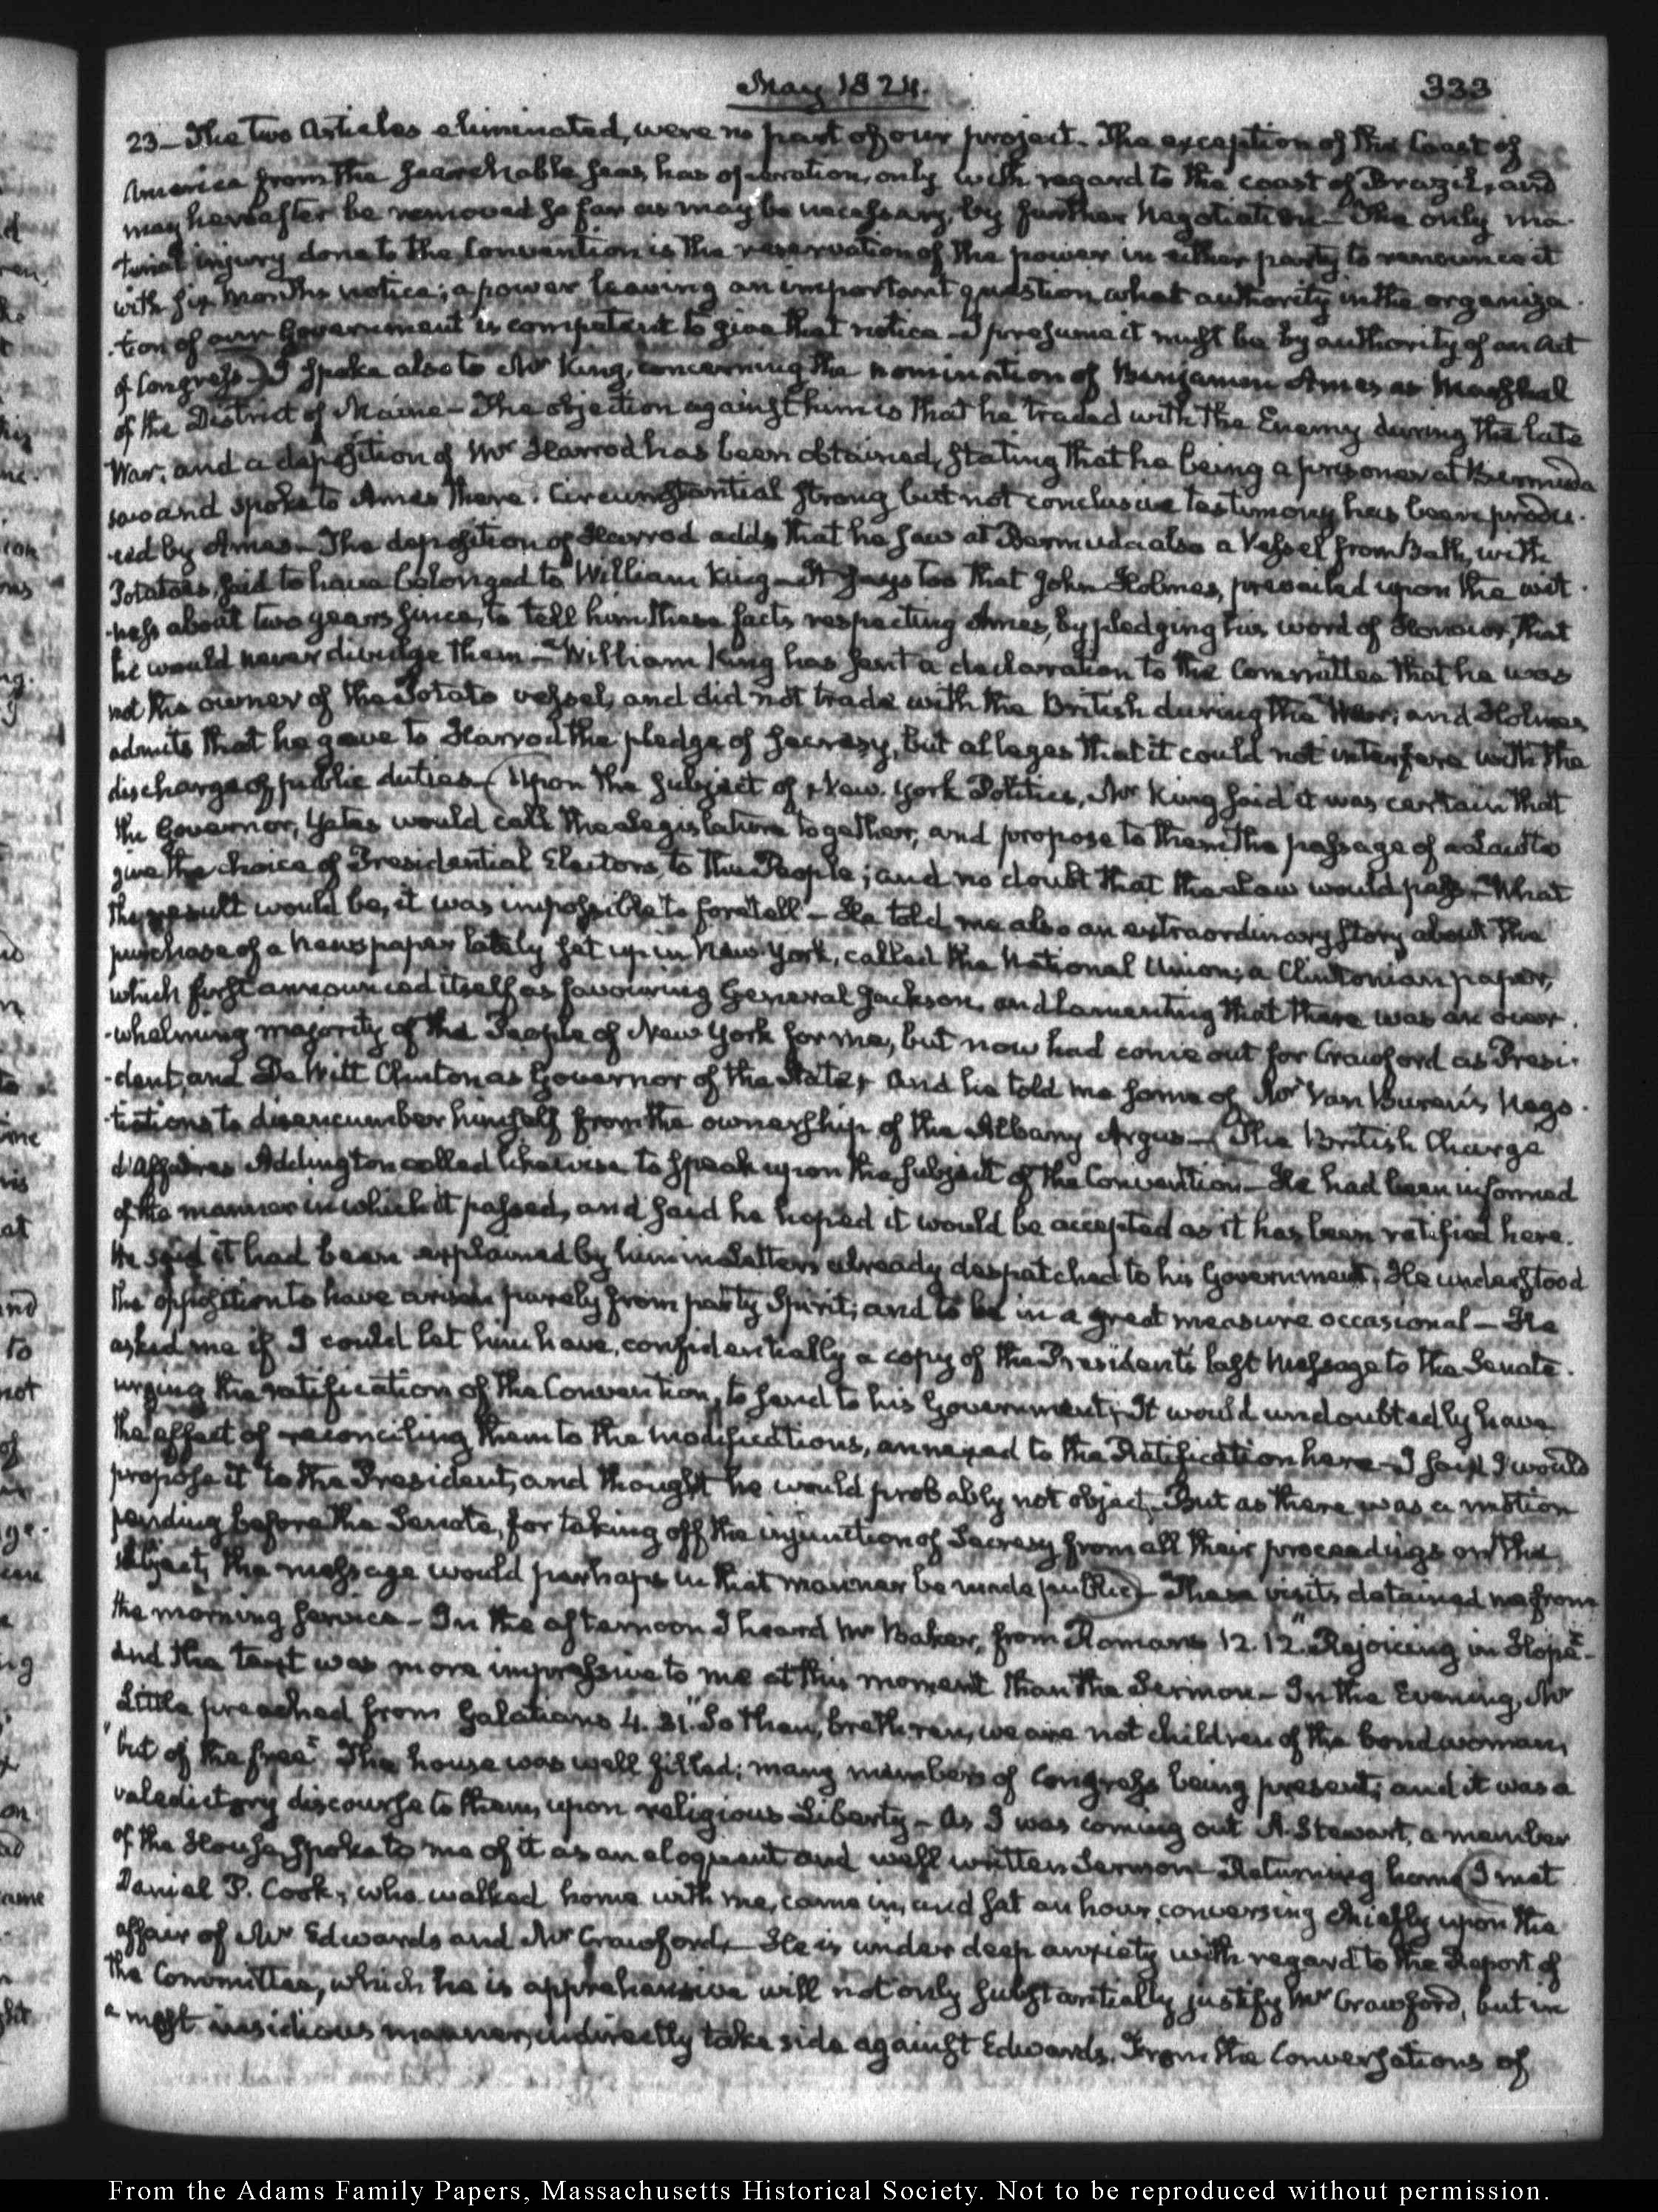 May 1824.
333
23— The two Articles eliminated, were no part of our project. The exception of the Coast of
America from the searchable seas, has operation, only with regard to the coast of Brazil, and
may hereafter be removed so far as may be necessary, by further Negotiation— The only ma-
-terial injury done to the Convention is the reservation of the power in either party to renounce it
with six months notice; a power leaving an important question what authority in the organiza-
-tion of our Government is competent to give that notice— I presume it must be by authority of an Act
of Congress— I spoke also to Mr King, concerning the nomination of Benjamin Ames as Marshal
of the District of Maine— The objection against him is that he traded with the Enemy during the late
War, and a deposition of Mr Harrod has been obtained, stating that he being a prisoner at Bermuda
saw and spoke to Ames there. Circumstantial strong but not conclusive testimony has been produ-
-ced by Ames— The deposition of Harrod adds that he saw at Bermuda also a Vessel from Bath, with
Potatoes, said to have belonged to William King— It says too that John Holmes, prevailed upon the wit-
-ness about two years since, to tell him these facts respecting Ames, by pledging his word of Honour, that
he would never divulge them— William King has sent a declaration to the Committee that he was
not the owner of the Potato vessel, and did not trade with the British during the War; and Holmes
admits that he gave to Harrod the pledge of secresy, but alleges that it could not interfere with the
discharge of public duties— (Upon the subject of New York Politics, Mr King said it was certain that
the Governor, Yates would call the Legislature together, and propose to them the passage of a Law to
give the choice of Presidential Electors, to the People; and no doubt that the Law would pass— What
the result would be, it was impossible to foretell— He told me also an extraordinary story about the
purchase of a newspaper lately set up in New York, called the National Union; a Clintonian paper,
which first announced itself as favouring General Jackson, and lamenting that there was an over-
-whelming majority of the People of New York for me, but now had come out for Crawford as Presi-
-dent, and De Witt Clinton as Governor of the State, And he told me some of Mr Van Buren's nego-
-tiations to disencumber himself from the ownership of the Albany Argus— (The British Charge
d'Affaires Addington called likewise to speak upon the subject of the Convention— He had been informed
of the manner in which it passed, and said he hoped it would be accepted as it has been ratified here.
He said it had been explained by him in Letters already despatched to his Government. He understood
the opposition to have arisen purely from party Spirit; and to be in a great measure occasional— He
asked me if I could let him have, confidentially a copy of the President's last Message to the Senate
urging the ratification of the Convention, to send to his Government, It would undoubtedly have
the effect of reconciling them to the modifications, annexed to the Ratification here— I said I would
propose it to the President, and thought he would probably not object. But as there was a motion
pending before the Senate, for taking off the injunction of Secresy from all their proceedings on the
subject, the message would perhaps in that manner be made public)— These visits detained me from
the morning service— In the afternoon I heard Mr Baker, from Romans 12. 12. "Rejoicing in Hope"—
And the text was more impressive to me at this moment than the Sermon— In the Evening, Mr
Little preached from Galatians 4. 31. "So then, brethren, we are not children of the bondwoman,
"but of the free" The house was well filled; many members of Congress being present; and it was a
valedictory discourse to them, upon religious Liberty— As I was coming out A. Stewart, a member
of the House, spoke to me of it as an eloquent and well written Sermon— Returning home (I met
Daniel P. Cook, who walked home with me, came in, and sat an hour, conversing chiefly upon the
affair of Mr Edwards and Mr Crawford,— He is under deep anxiety with regard to the Report of
the Committee, which he is apprehensive will not only substantially justify Mr Crawford, but in
a most insidious manner, indirectly take side against Edwards. From the Conversations of
From the Adams Family Papers, Massachusetts Historical Society. Not to be reproduced without permission.